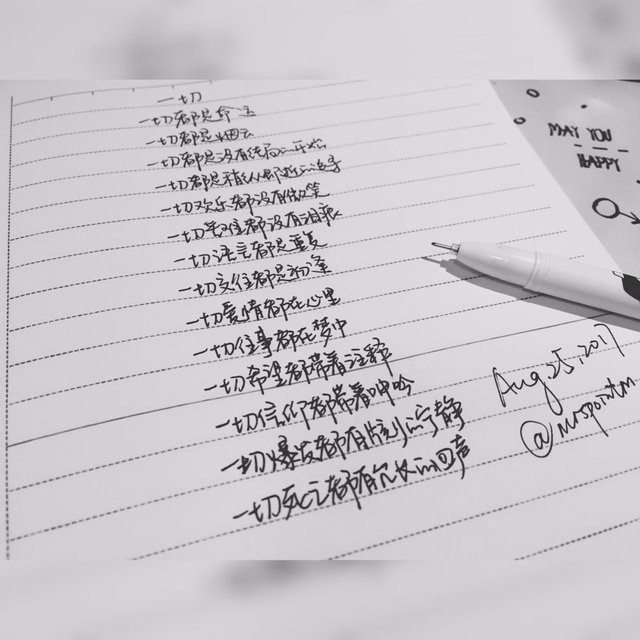 一切
一切都是命运
一切都是烟云
一切都是没有结局的开始
一切都是稍纵即逝的追寻
一切欢乐都没有微笑
一切苦难都没有泪痕
一切语言都是重复
一切交往都是初逢
一切爱情都在心里
一切往事都在梦中
一切希望都带着注释
一切信仰都带着呻吟
一切爆发都有片刻的宁静
一切死亡都有冗长的回声
Aug.25,2017
MAY YOU
HAPPY